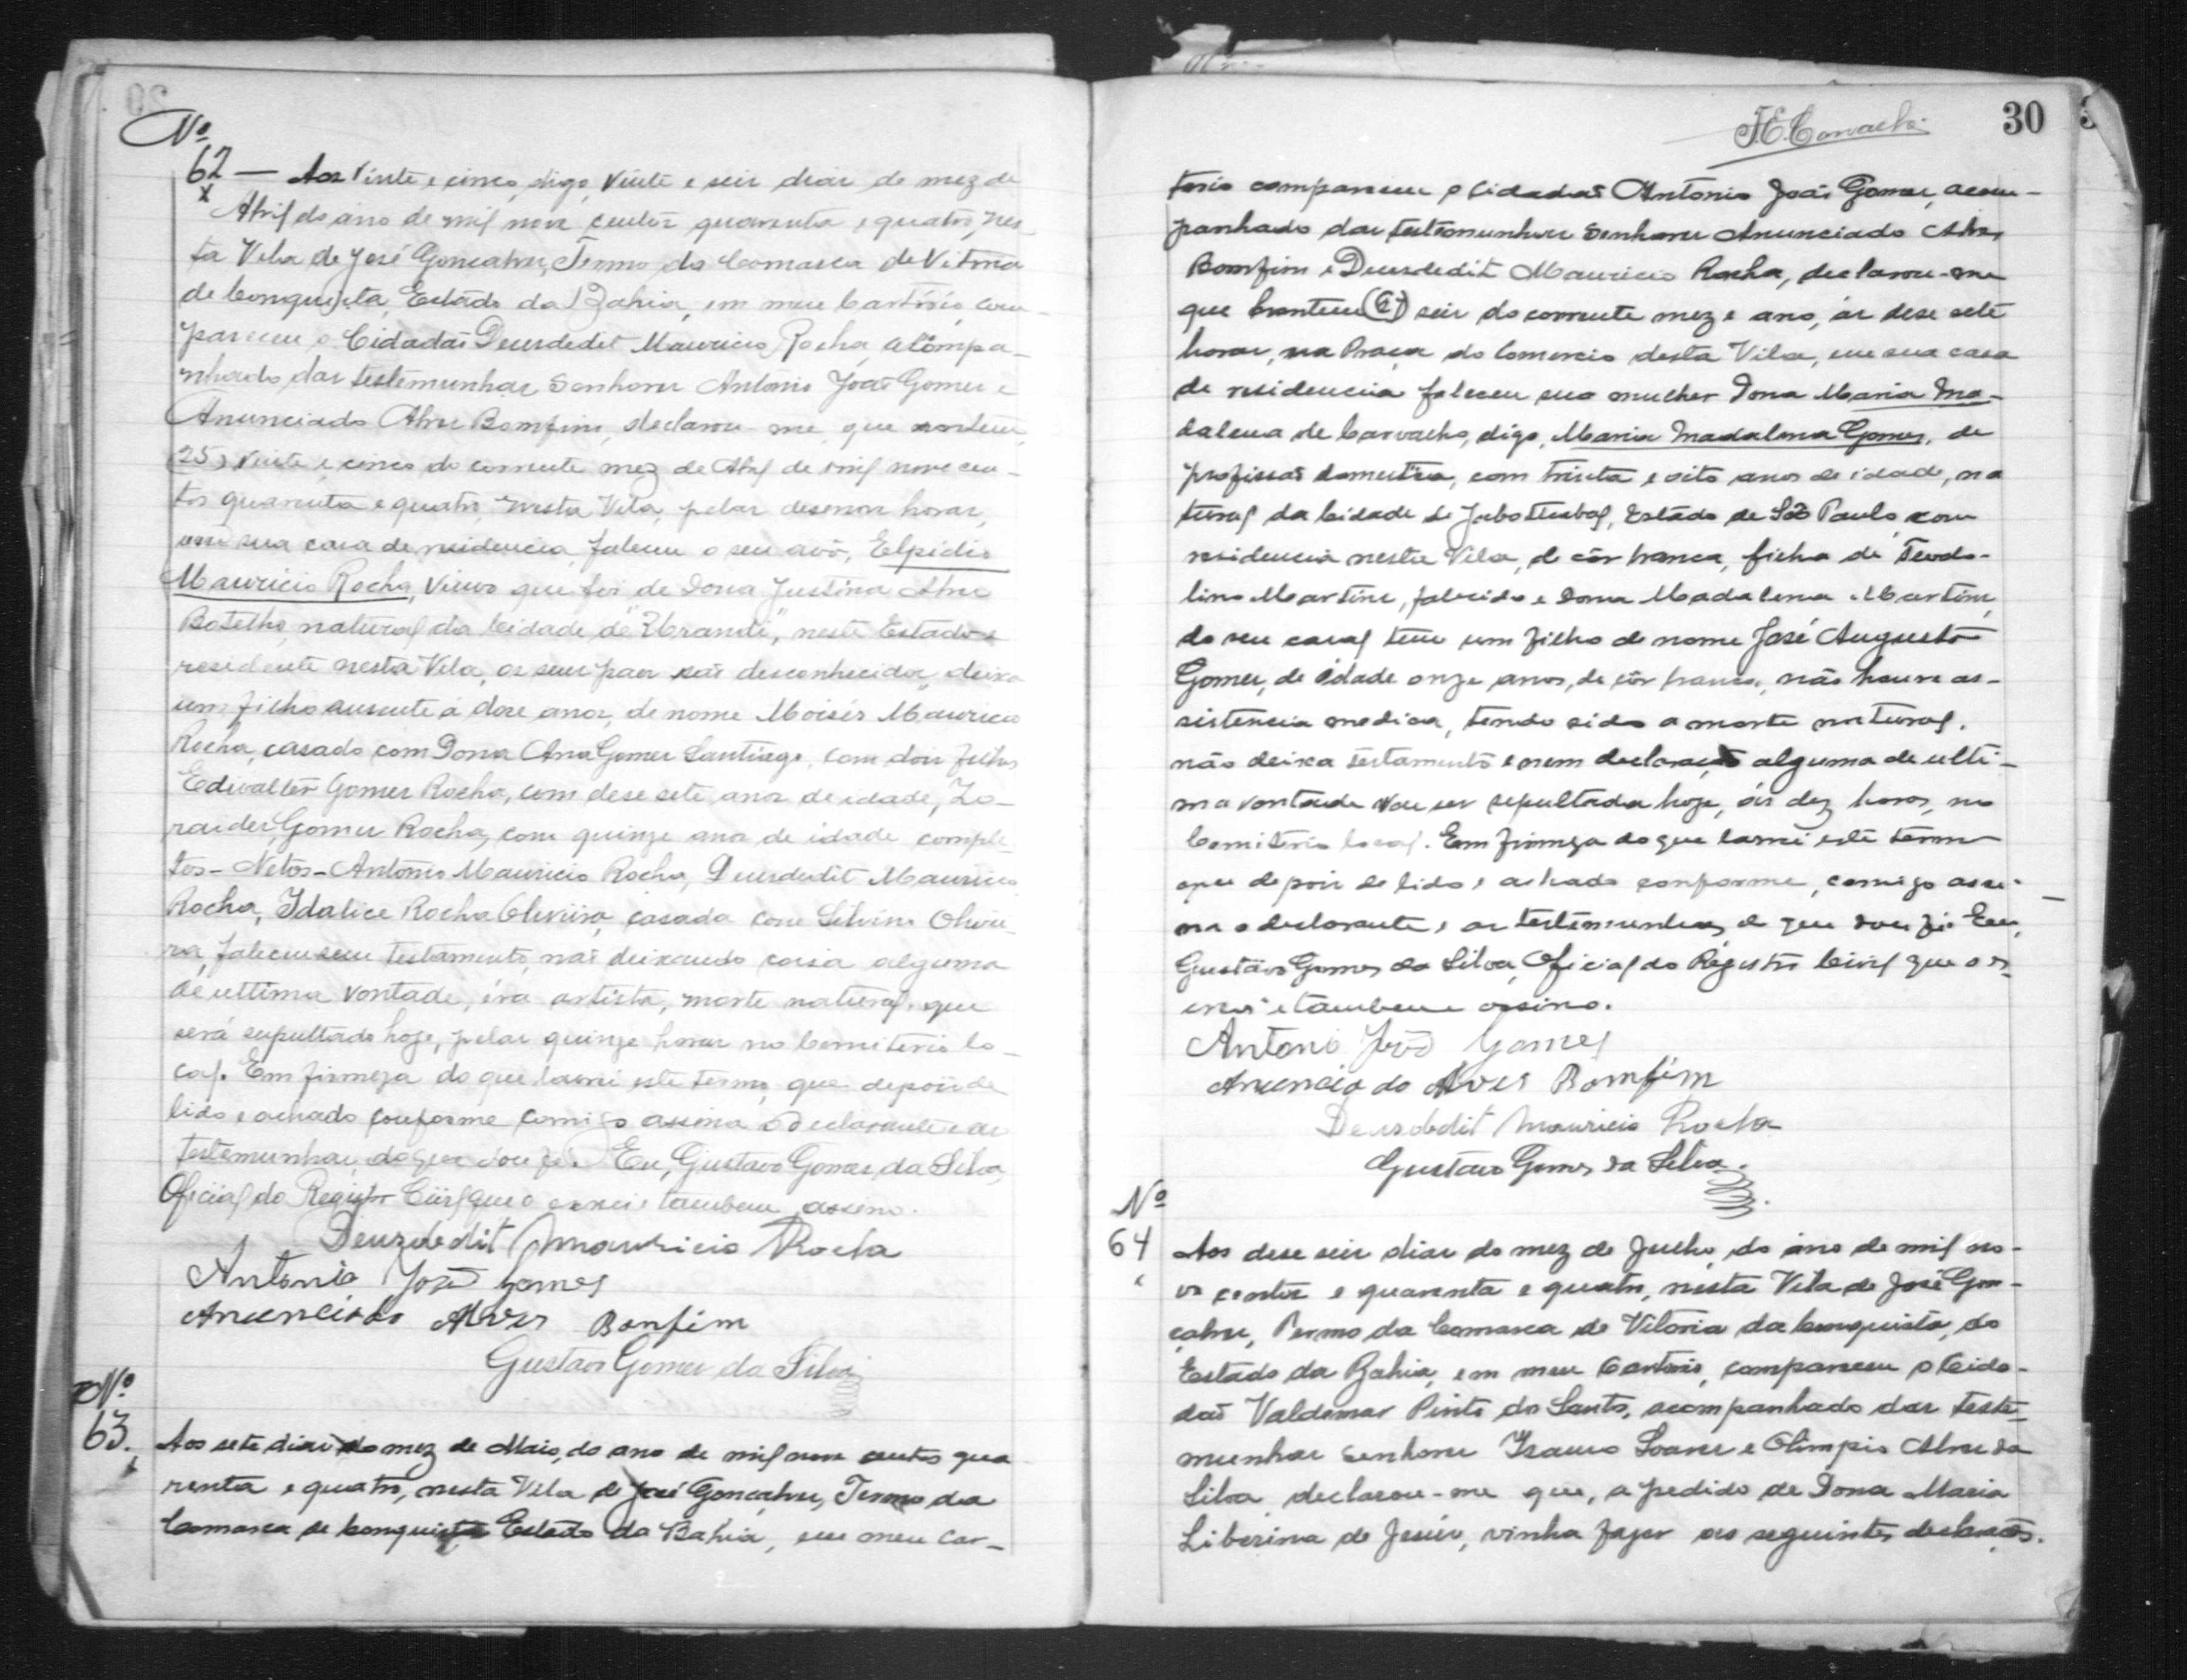 Nº
62 — Aos vinte e cinco, digo, vinte e seis dias do mez de
Abril do ano de mil nove centos quarenta e quatro, nes
ta Vila de José Gonçalves, Termo da Comarca de Vitoria
de Conquista, Estado da Bahia, em meu Cartório, com-
pareceu o Cidadão Deusdedit Mauricio Rocha, acompa-
nhado das testemunhas Senhores Antonio João Gomes e
Anunciado Alves Bomfim, declarou-me que ontem
(25) vinte e cinco do corrente mez de Abril de mil nove cen-
tos quarenta e quatro, nesta Vila, pelas desenove horas,
em sua casa de residencia, faleceu o seu avô, Elpidio
Mauricio Rocha, viuvo que foi de Dona Justina Alves
Botelho, natural da Cidade de "Urandí", neste Estado e
residente nesta Vila, os seus paes são desconhecidos, deixa
um filho ausente á dose anos, de nome Moisés Mauricio
Rocha, casado com Dona Ana Gomes Santiago, com dois filhos
Edivalter Gomes Rocha, com dese sete anos de idade, Zo-
raides Gomes Rocha, com quinze anos de idade comple
tos - Netos - Antonio Mauricio Rocha, Deusdedit Mauricio
Rocha, Idalice Rocha Oliveira, casada com Silvino Olivei
ra, faleceu sem testamento, não deixando coisa alguma
de ultima vontade, éra artista, morte natural, que
será sepultado hoje, pelas quinze horas no Cemiterio lo-
cal. Em firmeza do que lavrei este termo, que depois de
lido e achado conforme comigo assina o declarante e as
testemunhas, do que dou fé. Eu, Gustavo Gomes da Silva,
Oficial do Registro Civil que o escrevi e tambem assino.
Deuzdedit Mauricio Rocha
Antonio João Gomes
Anunciado Alves Bonfim
Gustavo Gomes da Silva
Nº
63. Aos sete dias do mez de Maio, do ano de mil nove centos qua
renta e quatro, nesta Vila de José Gonçalves, Termo da
Comarca de Conquista Estado da Bahia, em meu Car-
J.E. Carvalho
30
torio compareceu o cidadão Antonio João Gomes, acom-
panhado das testemunhas Senhores Anunciado Alves
Bomfim e Deusdedit Mauricio Rocha, declarou-me
que hontem (6) seis do corrente mez e ano, ás dese sete
horas, na Praça do Comercio desta Vila, em sua casa
de residencia faleceu sua mulher Dona Maria Ma-
dalena de Carvalho, digo, Maria Madalena Gomes, de
profissão domestica, com trinta e oito anos de idade, na
tural da Cidade de Jaboticabal, Estado de São Paulo, com
residencia nesta Vila, de côr branca, filha de Teodo-
lino Martins, falecido e Dona Madalena Martins,
do seu casal tem um filho de nome José Augusto
Gomes, de idade onze anos, de côr branca, não houve as-
sistencia medica, tendo sido a morte natural.
não deixa testamento e nem declaração alguma de ulti-
ma vontade vae ser sepultada hoje, ás dez horas, no
Cemiterio local. Em firmeza do que lavrei este termo
que depois de lido e achado conforme, comigo assi-
na o declarante e as testemunhas, de que dou fé. Eu,
Gustavo Gomes da Silva, Oficial do Registro Civil que o es
crevi e tambem assino.
Antonio João Gomes
Anunciado Alves Bomfim
Deusdedit Mauricio Rocha
Gustavo Gomes da Silva.
Nº
64 Aos dese seis dias do mez de Julho, do ano de mil no-
ve centos e quarenta e quatro, nesta Vila de José Gon-
çalves, Termo da Comarca de Vitoria da Conquista, do
Estado da Bahia, em meu Cartorio, compareceu o Cida-
dão Valdemar Pinto do Santo, acompanhado das teste-
munhas Senhores Isauro Soares e Olimpio Alves da
Silva declarou-me que, a pedido de Dona Maria
Liberina de Jesus, vinha fazer as seguintes declarações.